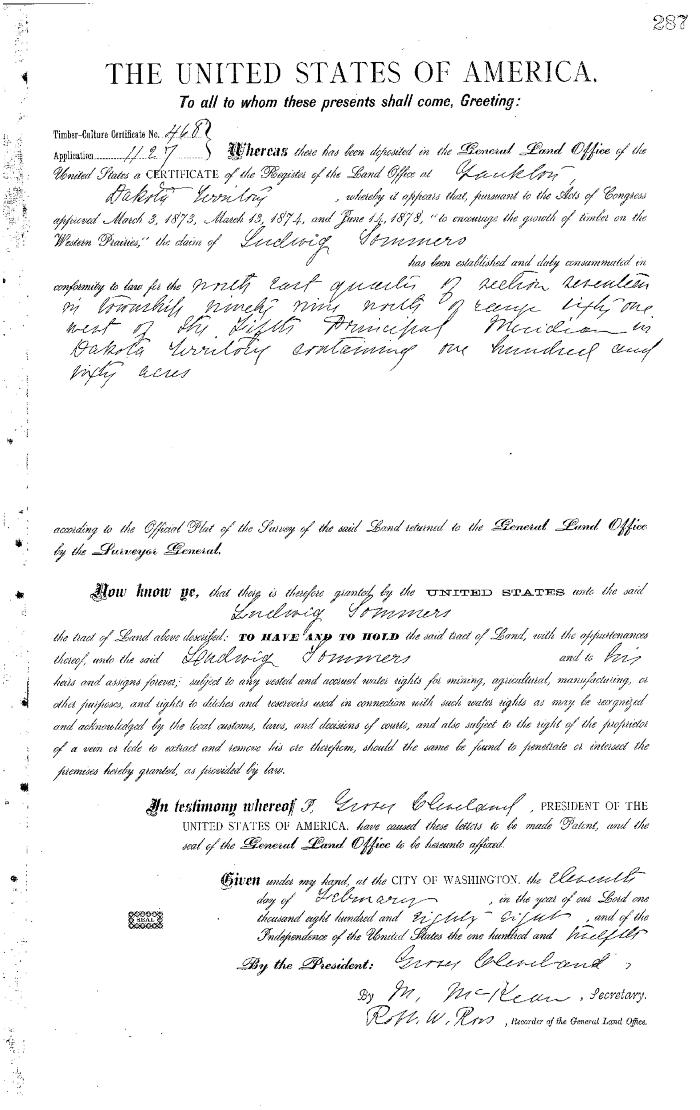 287
THE UNITED STATES OF AMERICA.
To all to whom these presents shall come, Greeting:
Timber-Culture Certificate No. 468
Application 1127
Whereas there has been deposited in the General Land Office of the
United States a CERTIFICATE of the Register of the Land Office at Yankton,
Dakota Territory, whereby it appears that, pursuant to the Acts of Congress
approved March 3, 1873, March 13, 1874, and June 14, 1878, "to encourage the growth of timber on the
Western Prairies," the claim of Ludwig Sommers
has been established and duly consummated in
conformity to law for the north east quarter of section seventeen
in township ninety nine north of range sixty one
west of the Fifth Principal Meridian in
Dakota Territory containing one hundred and
sixty acres
according to the Official Plat of the Survey of the said Land returned to the General Land Office
by the Surveyor General.
Now know ye, that there is therefore granted by the UNITED STATES unto the said
Ludwig Sommers
the tract of Land above described: TO HAVE AND TO HOLD the said tract of Land, with the appurtenances
thereof, unto the said Ludwig Sommers and to his
heirs and assigns forever; subject to any vested and accrued water rights for mining, agricultural, manufacturing, or
other purposes, and rights to ditches and reservoirs used in connection with such water rights as may be recognized
and acknowledged by the local customs, laws, and decisions of courts, and also subject to the right of the proprietor
of a vein or lode to extract and remove his ore therefrom, should the same be found to penetrate or intersect the
premises hereby granted, as provided by law.
In testimony whereof I, Grover Cleveland, PRESIDENT OF THE
UNITED STATES OF AMERICA, have caused these letters to be made Patent, and the
seal of the General Land Office to be hereunto affixed.
Given under my hand, at the CITY OF WASHINGTON, the eleventh
day of February, in the year of our Lord one
thousand eight hundred and eighty-eight, and of the
Independence of the United States the one hundred and twelfth
SEAL
By the President: Grover Cleveland,
By M. McKean, Secretary.
Robt. W. Ross, Recorder of the General Land Office.